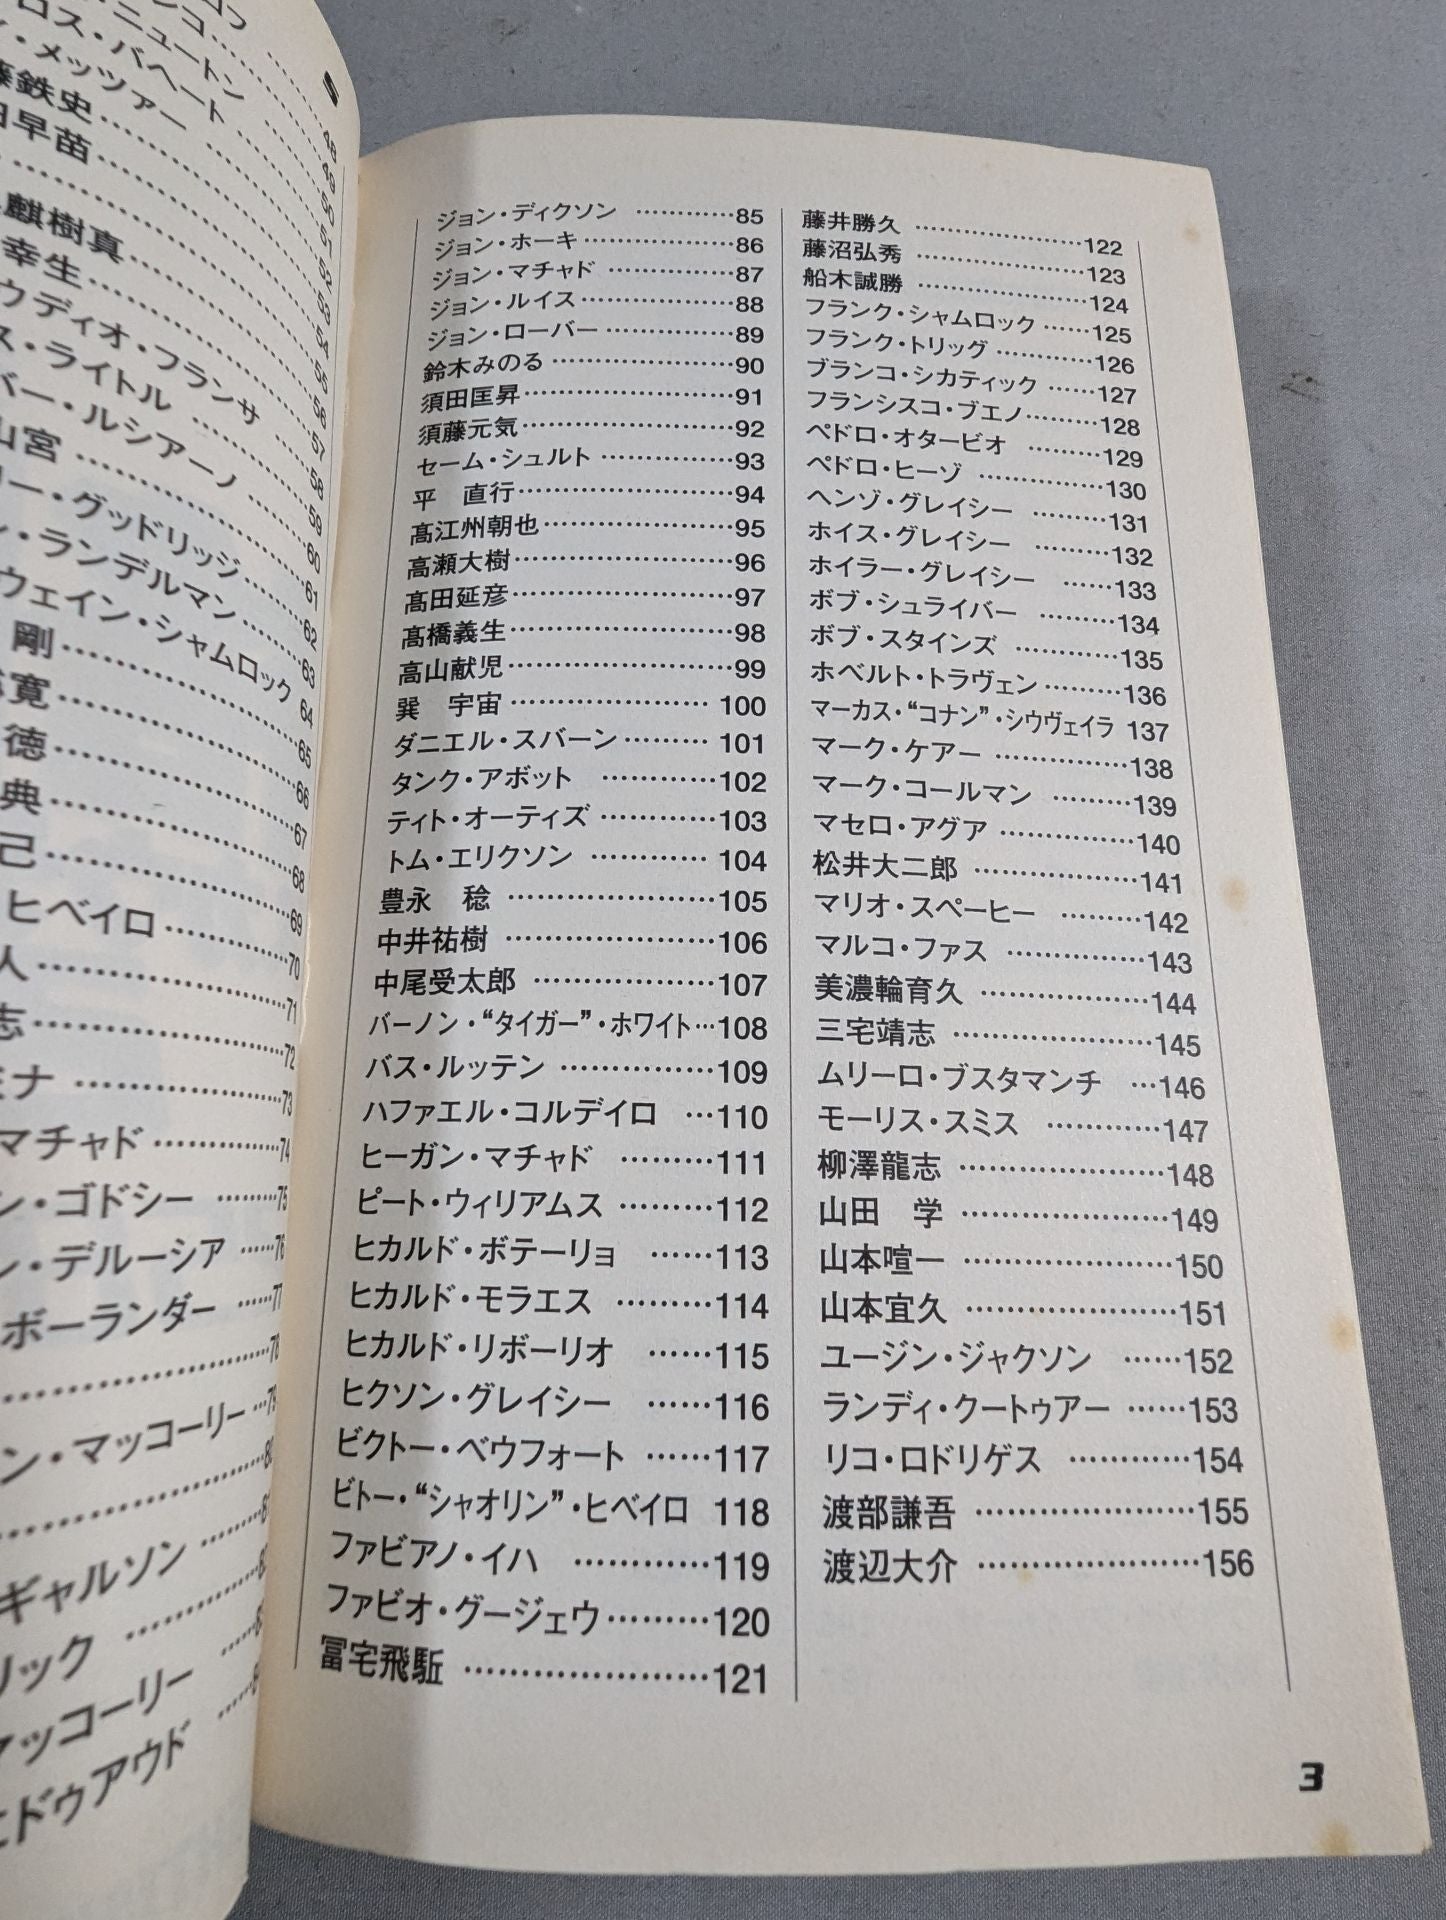 ロス・バヘート……50
・メッツァー……51
藤鉄史……52
田早苗……53
麒樹真
幸生
ウディオ・フランサ……57
ス・ライトル……58
バー・ルシアーノ……59
山宮……60
リー・グッドリッジ……61
ン・ランデルマン……62
ウェイン・シャムロック 64
剛
寛
徳
典
己
ヒベイロ……70
人……71
志……72
ミナ……73
マチャド……74
ン・ゴドシー……75
ン・デルーシア……76
ボーランダー……77
……78
ン・マッコーリー…79
ギャルソン
リック
マッコーリー
ドゥアウド
ジョン・ディクソン……85
ジョン・ホーキ……86
ジョン・マチャド……87
ジョン・ルイス……88
ジョン・ローバー……89
鈴木みのる……90
須田匡昇……91
須藤元気……92
セーム・シュルト……93
平　直行……94
髙江州朝也……95
高瀬大樹……96
髙田延彦……97
髙橋義生……98
高山献児……99
巽　宇宙……100
ダニエル・スバーン……101
タンク・アボット……102
ティト・オーティズ……103
トム・エリクソン……104
豊永　稔……105
中井祐樹……106
中尾受太郎……107
バーノン・“タイガー”・ホワイト…108
バス・ルッテン……109
ハファエル・コルデイロ…110
ヒーガン・マチャド……111
ピート・ウィリアムス……112
ヒカルド・ボテーリョ……113
ヒカルド・モラエス……114
ヒカルド・リボーリオ……115
ヒクソン・グレイシー……116
ビクトー・ベウフォート……117
ビトー・“シャオリン”・ヒベイロ 118
ファビアノ・イハ……119
ファビオ・グージェウ……120
冨宅飛駈……121
藤井勝久……122
藤沼弘秀……123
船木誠勝……124
フランク・シャムロック……125
フランク・トリッグ……126
ブランコ・シカティック……127
フランシスコ・ブエノ……128
ペドロ・オタービオ……129
ペドロ・ヒーゾ……130
ヘンゾ・グレイシー……131
ホイス・グレイシー……132
ホイラー・グレイシー……133
ボブ・シュライバー……134
ボブ・スタインズ……135
ホベルト・トラヴェン……136
マーカス・“コナン”・シウヴェイラ 137
マーク・ケアー……138
マーク・コールマン……139
マセロ・アグア……140
松井大二郎……141
マリオ・スペーヒー……142
マルコ・ファス……143
美濃輪育久……144
三宅靖志……145
ムリーロ・ブスタマンチ…146
モーリス・スミス……147
柳澤龍志……148
山田　学……149
山本喧一……150
山本宜久……151
ユージン・ジャクソン……152
ランディ・クートゥアー……153
リコ・ロドリゲス……154
渡部謙吾……155
渡辺大介……156
3